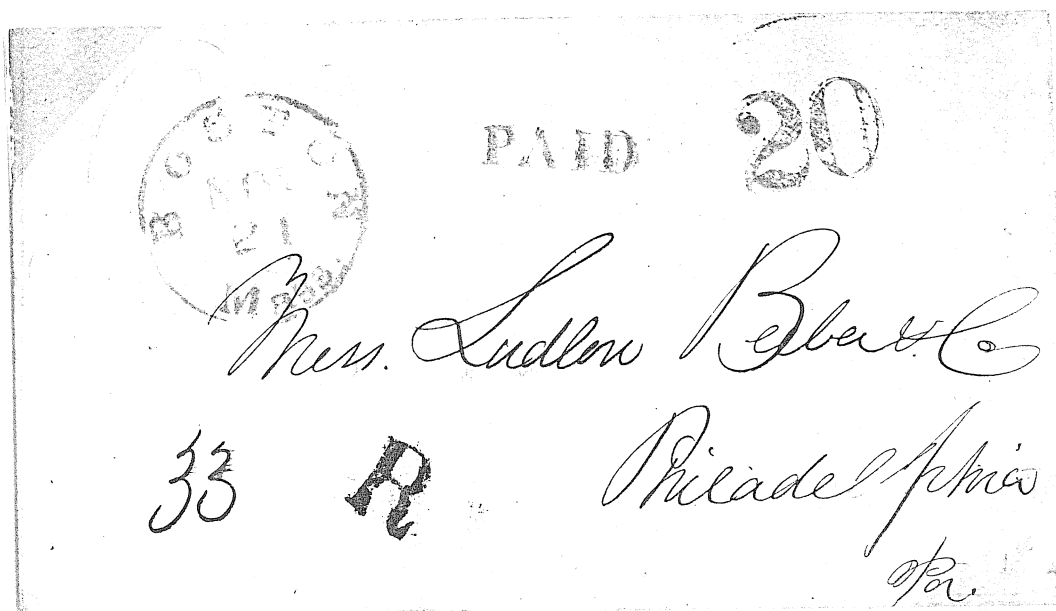 BOSTON
21
MASS.
PAID
20
Mess. Ludlow Beebe & Co
33 R
Philadelphia
Pa.